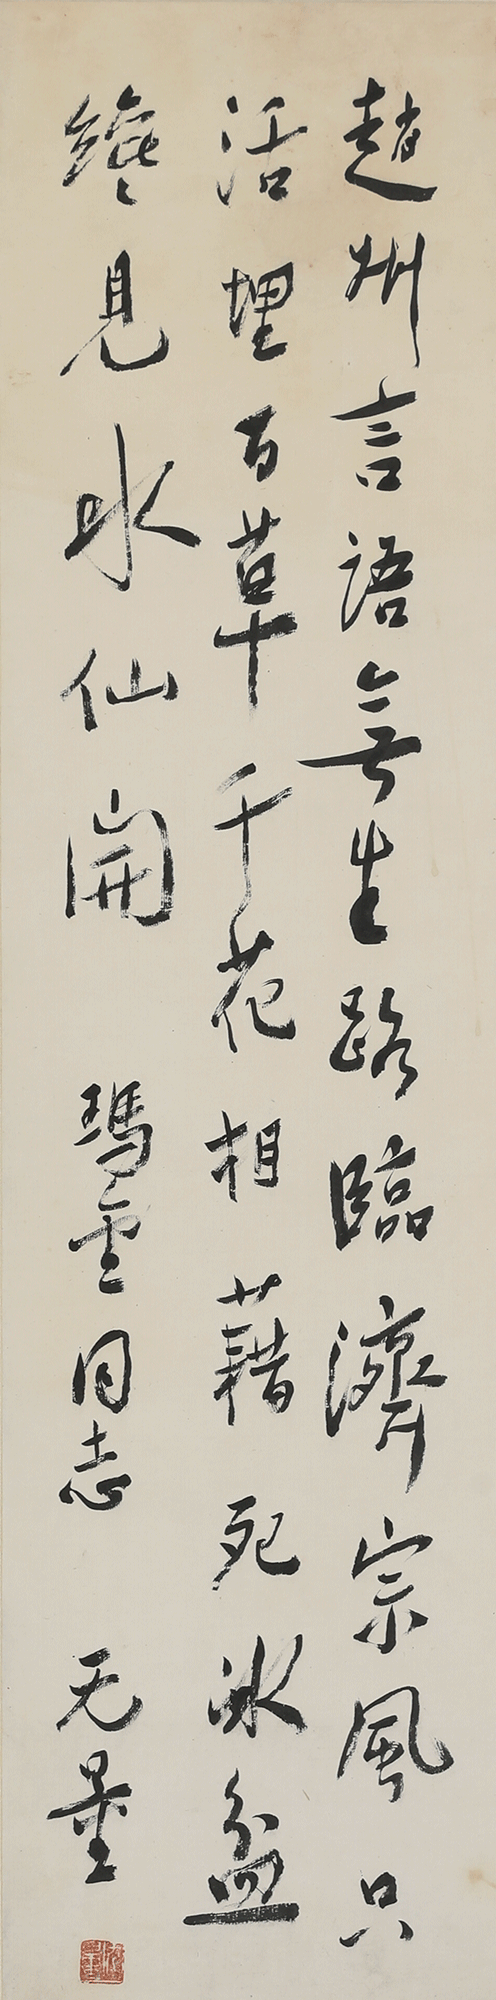 趙州言語無生路臨濟宗風只
活埋百草千花相藉死冰盆
纔見水仙開
瑪雲同志
无量